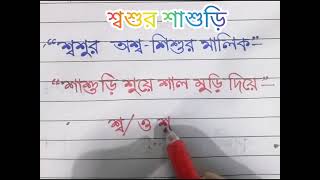 শ্বশুর শাশুড়ি
"শ্বশুর অশ্ব-শিশুর মালিক"
"শাশুড়ি শুয়ে শাল মুড়ি দিয়ে"
শ্ব / ও শ